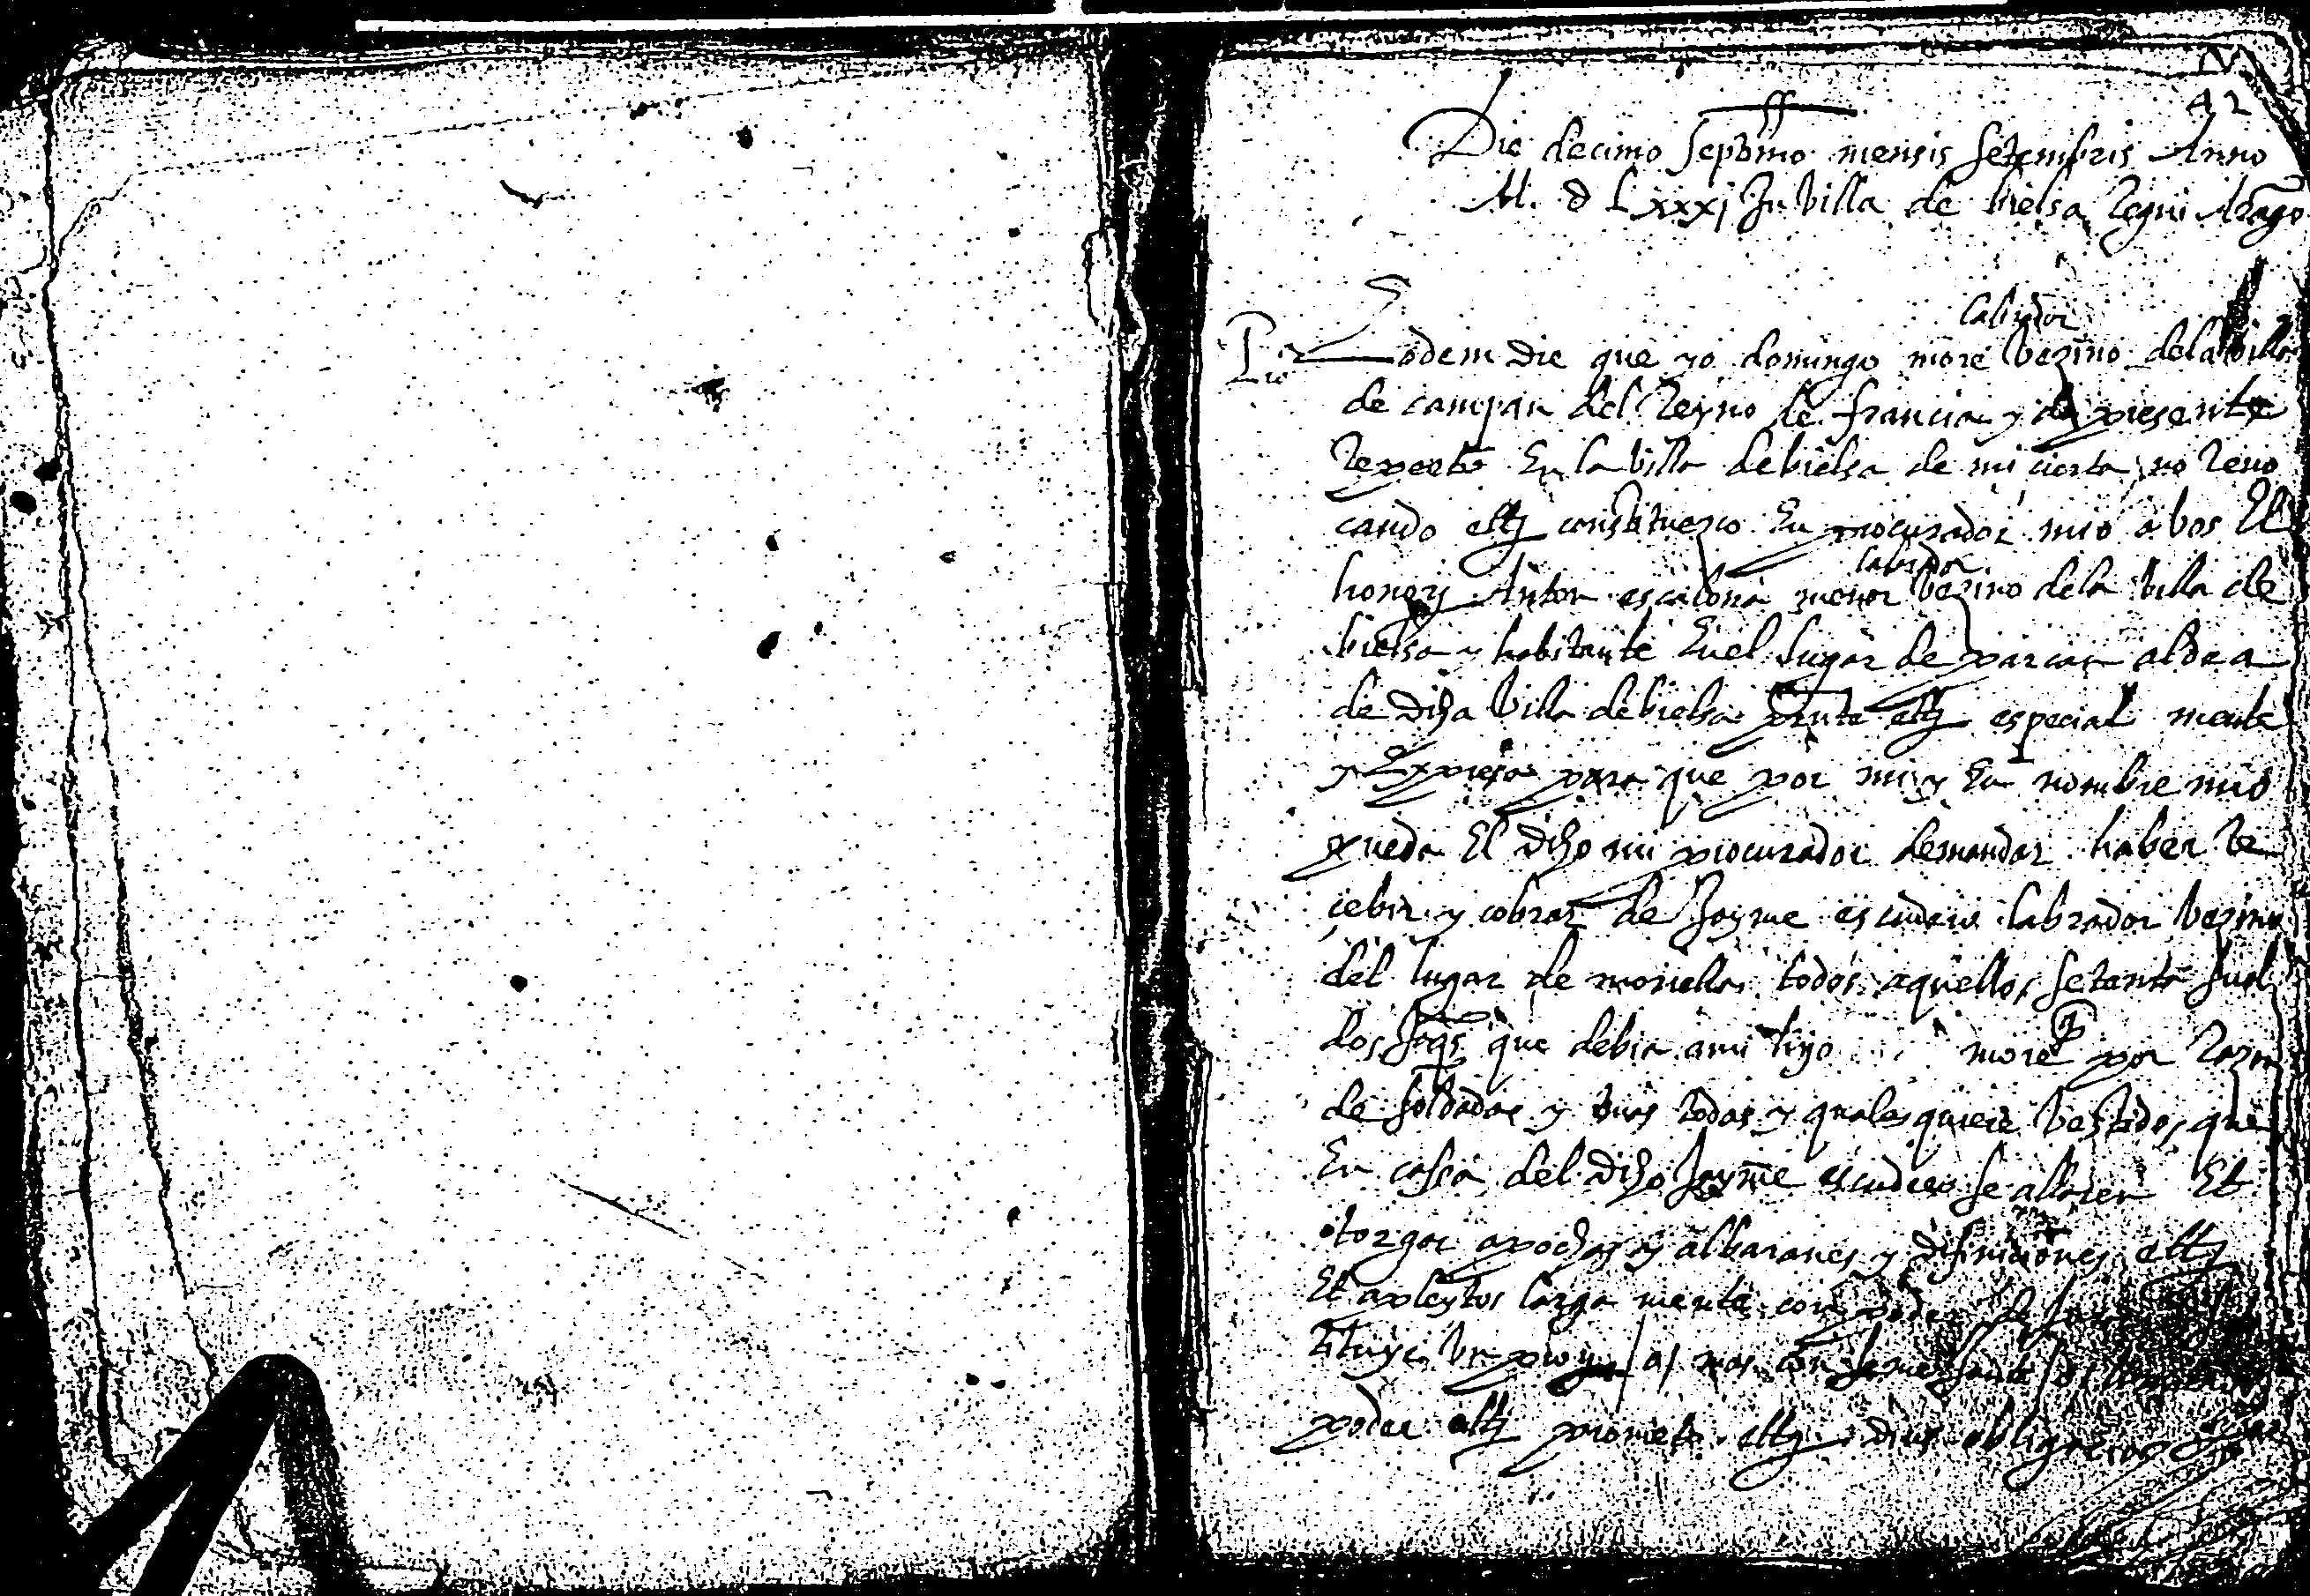 42
Die decimo septimo mensis setembris Anno
M. d Lxxxj In villa de bielsa Regni Arago
labrador
Eodem die que yo domingo more vezino dela villa
de campan del Reyno de francia y de presente
Repertº En la villa de bielsa de mi cierta no Revo
cando ettz constituezco En procurador mio a vos El
labrador
honor Anton escalona menor vezino dela villa de
bielsa y habitante En el lugar de parçan aldea
de dicha villa de bielsa ettz especial mente
y Expresa para que por mi y En nombre mio
pueda El dicho mi procurador demandar haber Re
çebir y cobrar de Jayme escudero labrador vezino
del lugar de todos aquellos setanta suel
dos que debia a mi hijo more por Razon
de soldadas y todas y quales quiere vestidos que
En cassa del dicho Jayme escudero se allaren Et
otorgar apochas y albaranes y difiniciones ettz
Et a pleytos larga mente con poder de
tituyr un
poder ettz prometo ettz obligacion